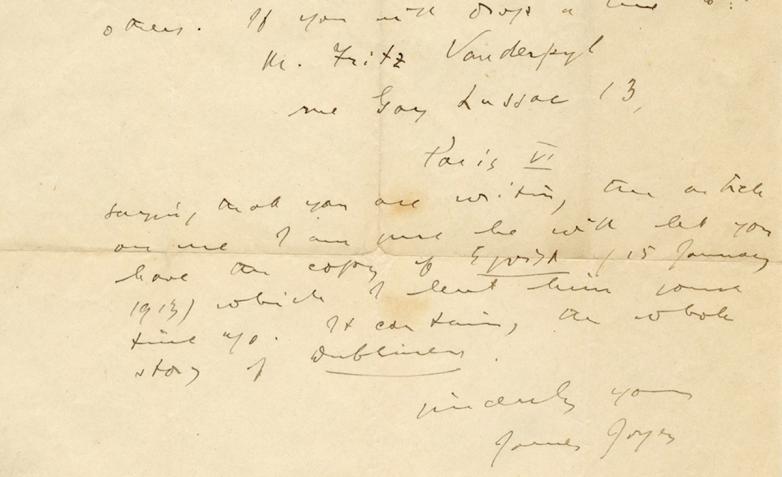 others. If you will drop a line to:
M. Fritz Vanderpyl
rue Gay Lussac 13,
Paris VI
saying that you are writing the article
on me I am sure he will let you
have the copy of Egoist (15 January
1913) which I lent him some
time ago. It contains the whole
story of Dubliners.
sincerely yours
James Joyce